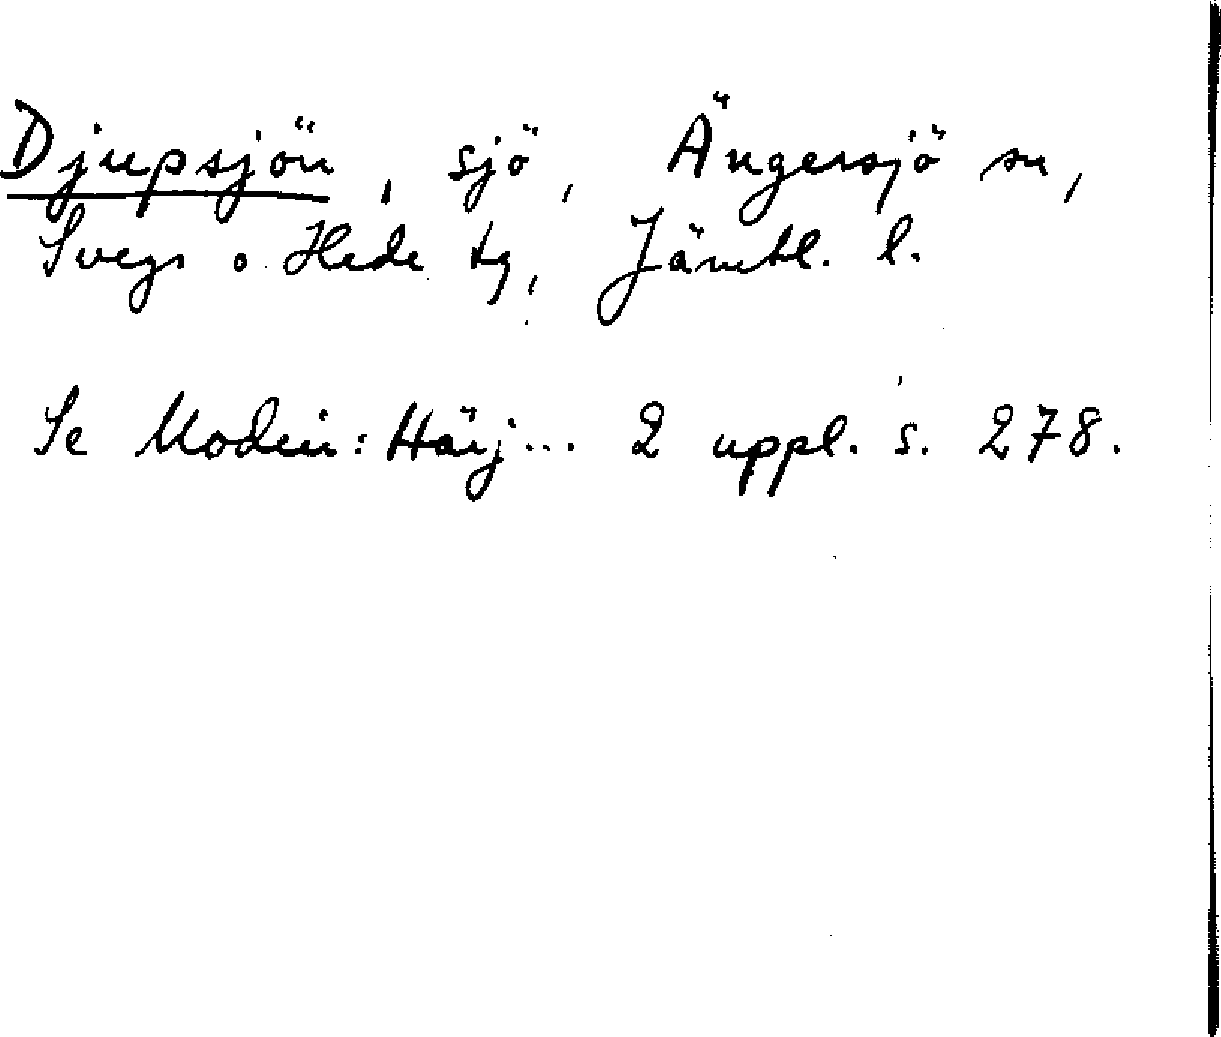 Djupsjön, sjö, Ängersjö sn,
Svegs o. Hede tg, Jämtl. l.
Se Modin: Härj... 2 uppl. s. 278.